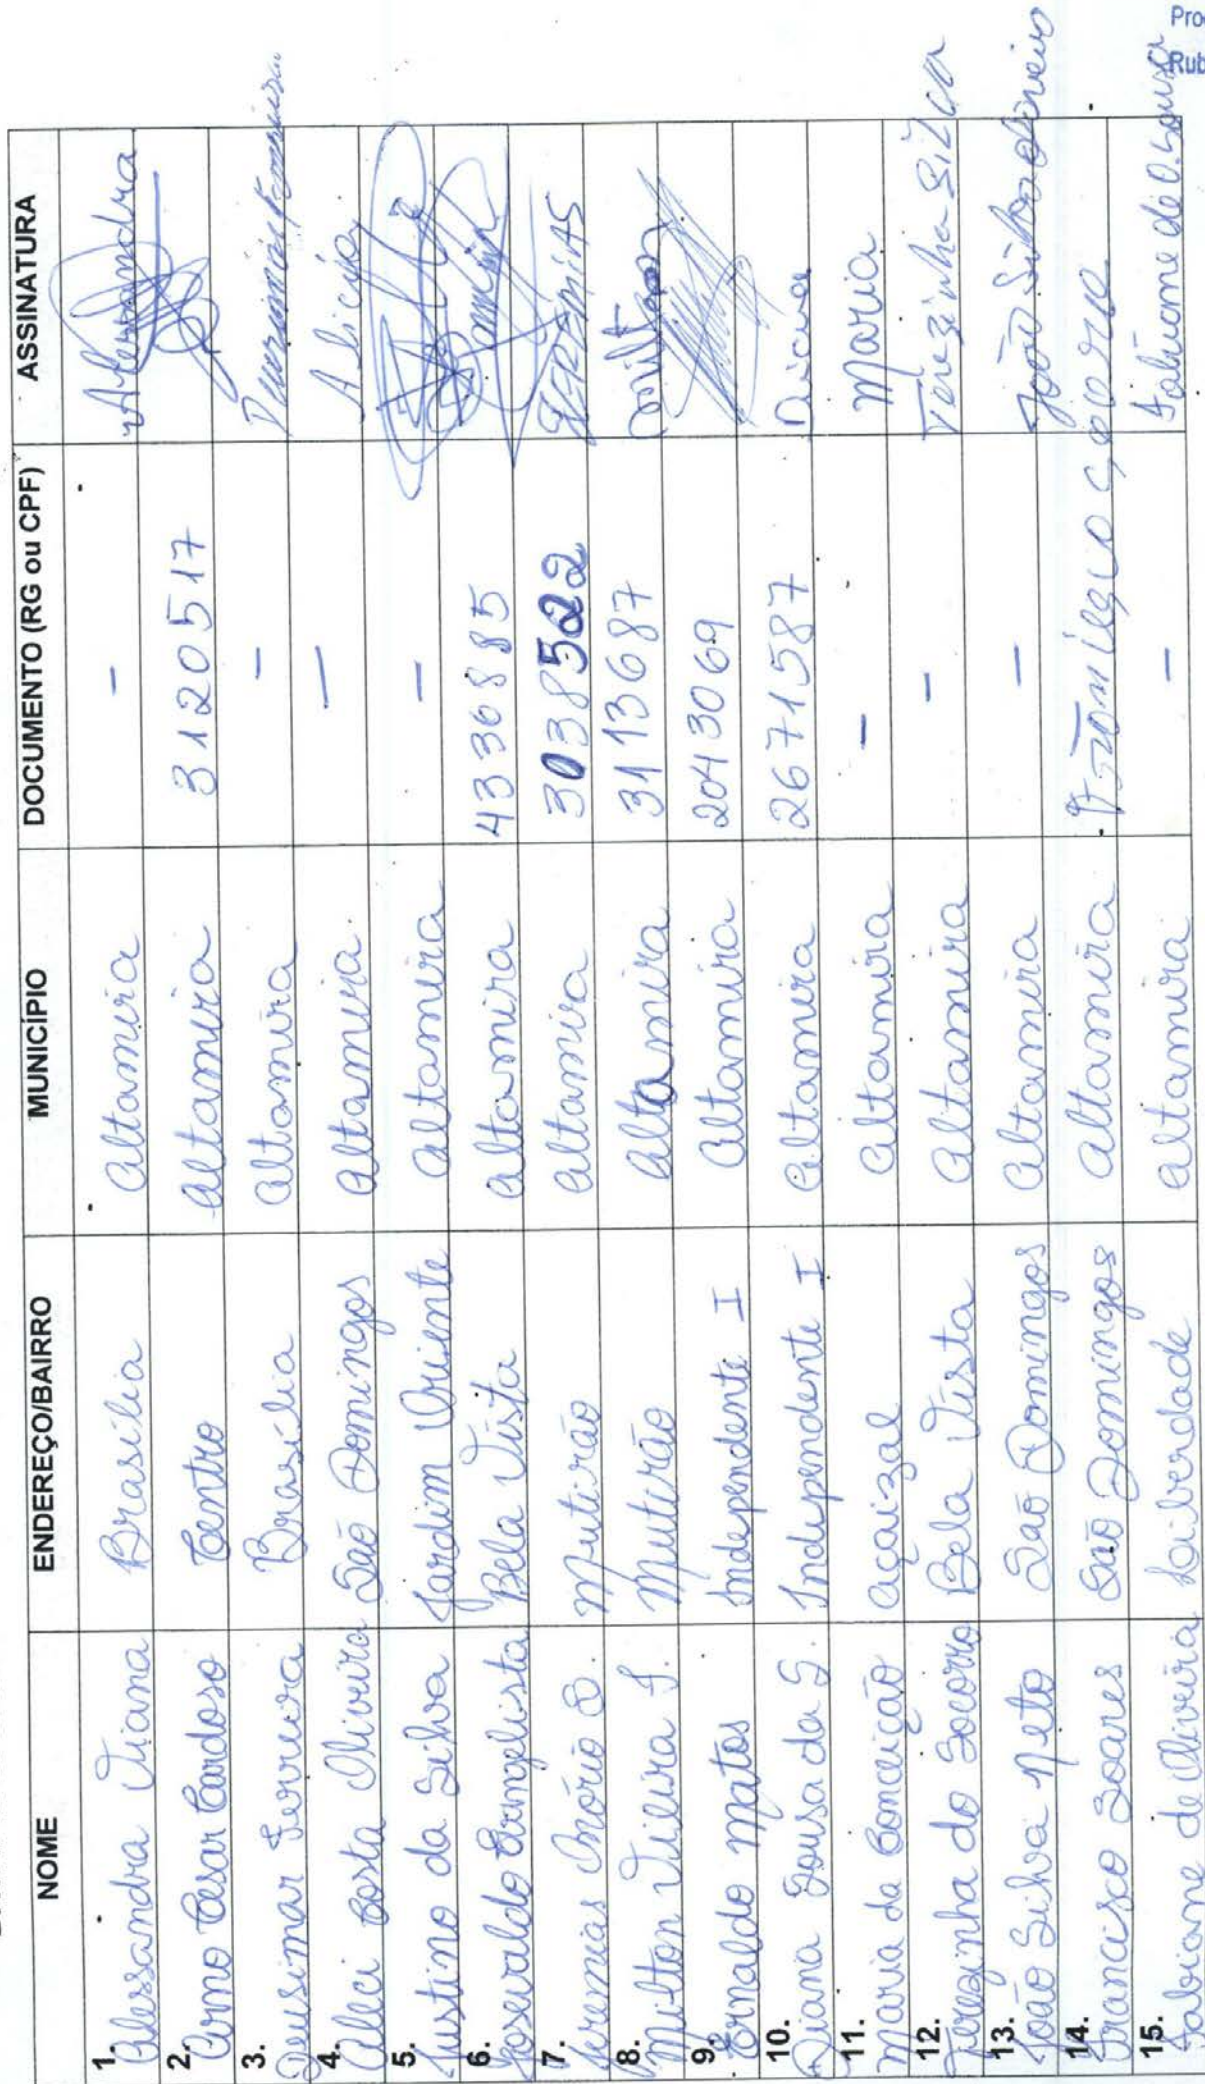 NOME ENDEREÇO/BAIRRO MUNICÍPIO DOCUMENTO (RG ou CPF) ASSINATURA
1. Alessandra Viana Brasília Altamira - Alessandra
2. Arno Cesar Cardoso Centro Altamira 3120517
3. Deusimar Ferreira Brasília Altamira -
4. Alci Costa Oliveira São Domingos Altamira -
5. Justino da Silva Jardim Oriente Altamira -
6. Josevaldo Evangelista Bela Vista Altamira 4336885
7. Jeremias Inório B. Mutirão Altamira 3038522 JEREMIAS
8. Milton Vieira F. Mutirão Altamira 3113687 Milton
9. Ernaldo Matos Independente I Altamira 2043069
10. Diana Sousa da S. Independente I Altamira 2671587 Diana
11. Maria da Conceição Açaizal Altamira - Maria
12. Terezinha do Socorro Bela Vista Altamira - Terezinha Silva
13. João Silva Neto São Domingos Altamira - João Silva
14. Francisco Soares São Domingos Altamira
15. Fabiane de Oliveira Liberdade Altamira - Fabiane de O. Souza
Pro
Rub